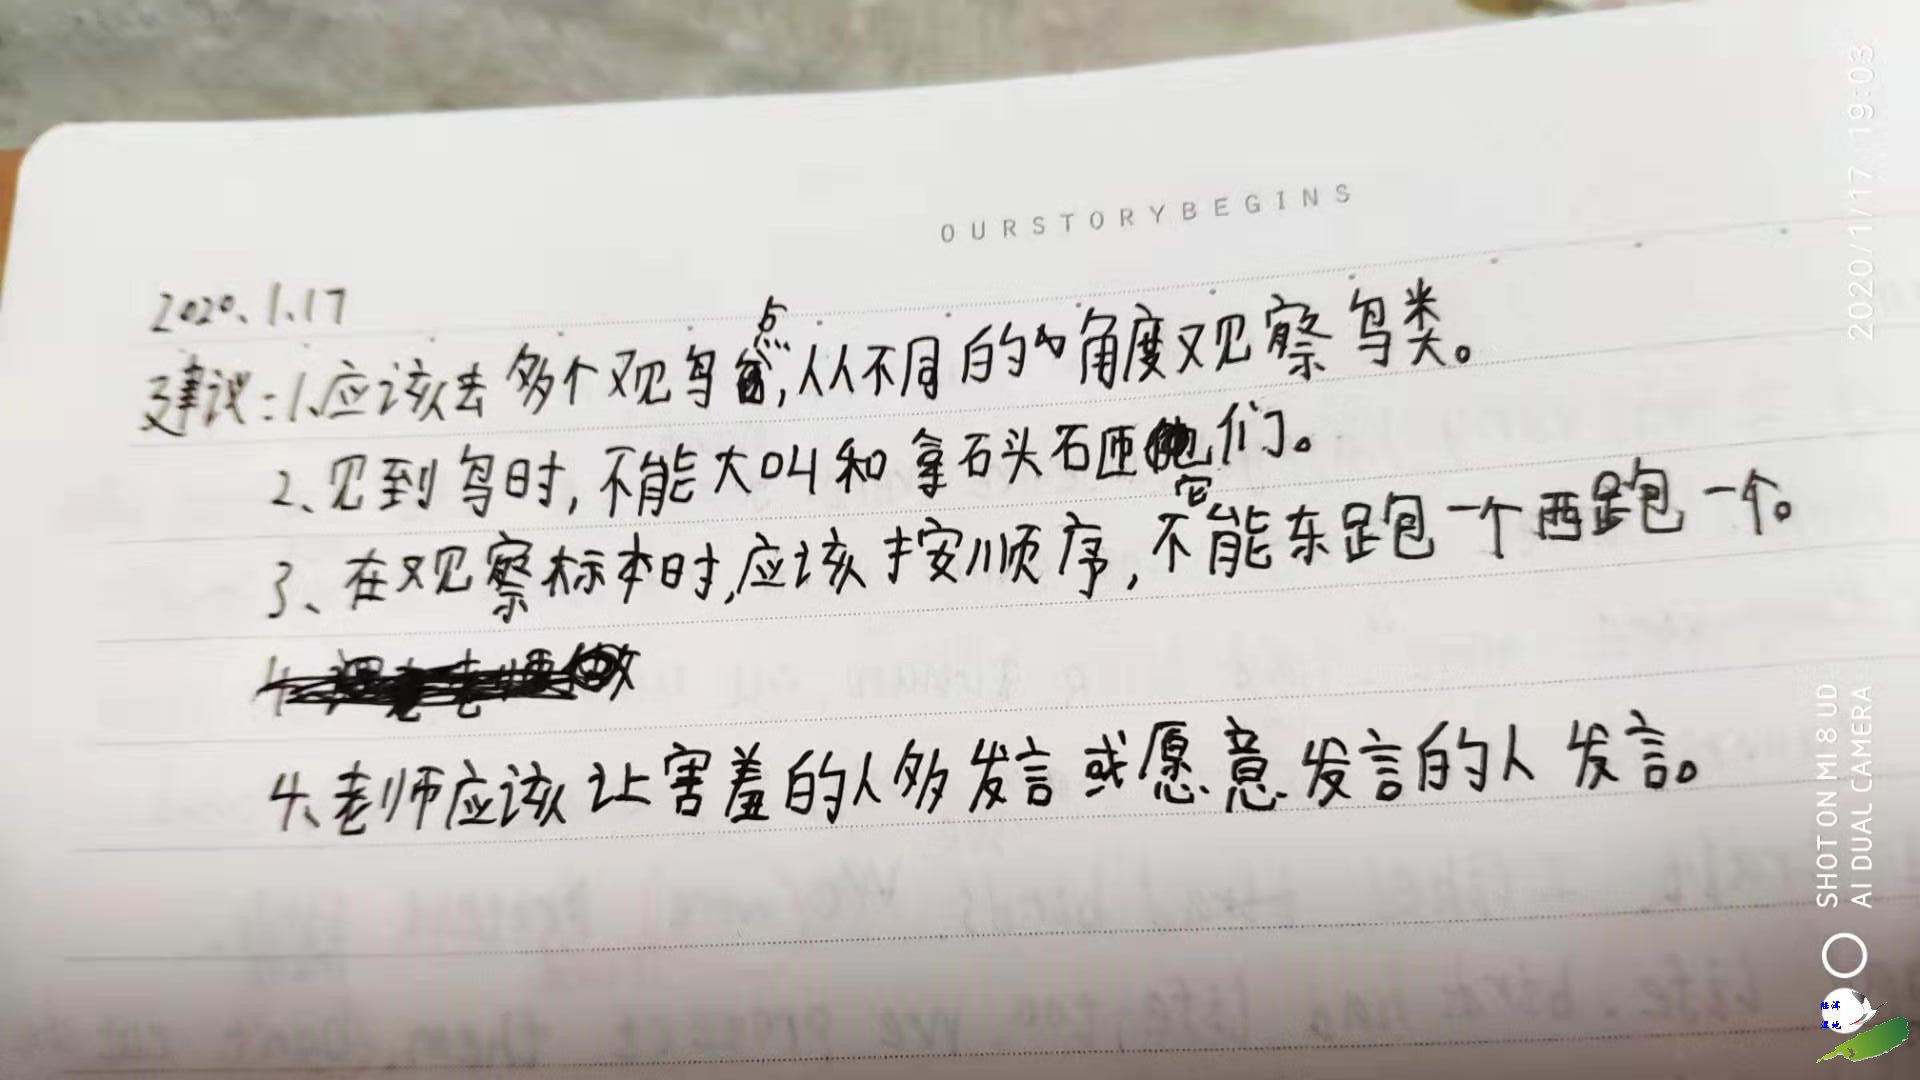 OURSTORYBEGINS
2020.1.17
建议:1、应该去多个观鸟点,从不同的角度观察鸟类。
2、见到鸟时,不能大叫和拿石头砸它们。
3、在观察标本时,应该按顺序,不能东跑一个西跑一个。
4、老师应该让害羞的人多发言或愿意发言的人发言。
2020/1/17 19:03
SHOT ON MI 8 UD
AI DUAL CAMERA